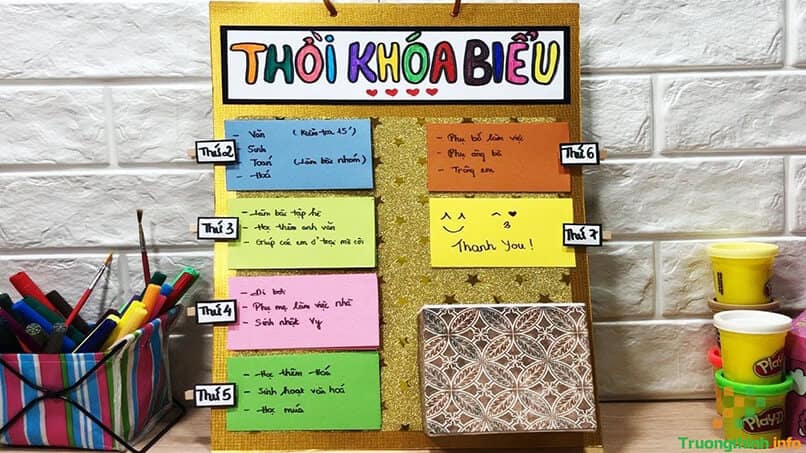 THỜI KHÓA BIỂU
Thứ 2
- Văn (Kiểm tra 15')
- Sinh
- Toán (làm bài nhóm)
- Hoá
Thứ 3
- Làm bài tập hè
- Học thêm anh văn
- Giúp các em ở trại mồ côi
Thứ 4
- Đi bơi
- Phụ mẹ làm việc nhà
- Sinh nhật Vy
Thứ 5
- Học thêm Hoá
- Sinh hoạt văn hoá
- Học múa
Thứ 6
- Phụ bố làm việc
- Phụ ông bà
- Trông em
Thứ 7
Thank You!
Play-Doh
Truongthinh.info